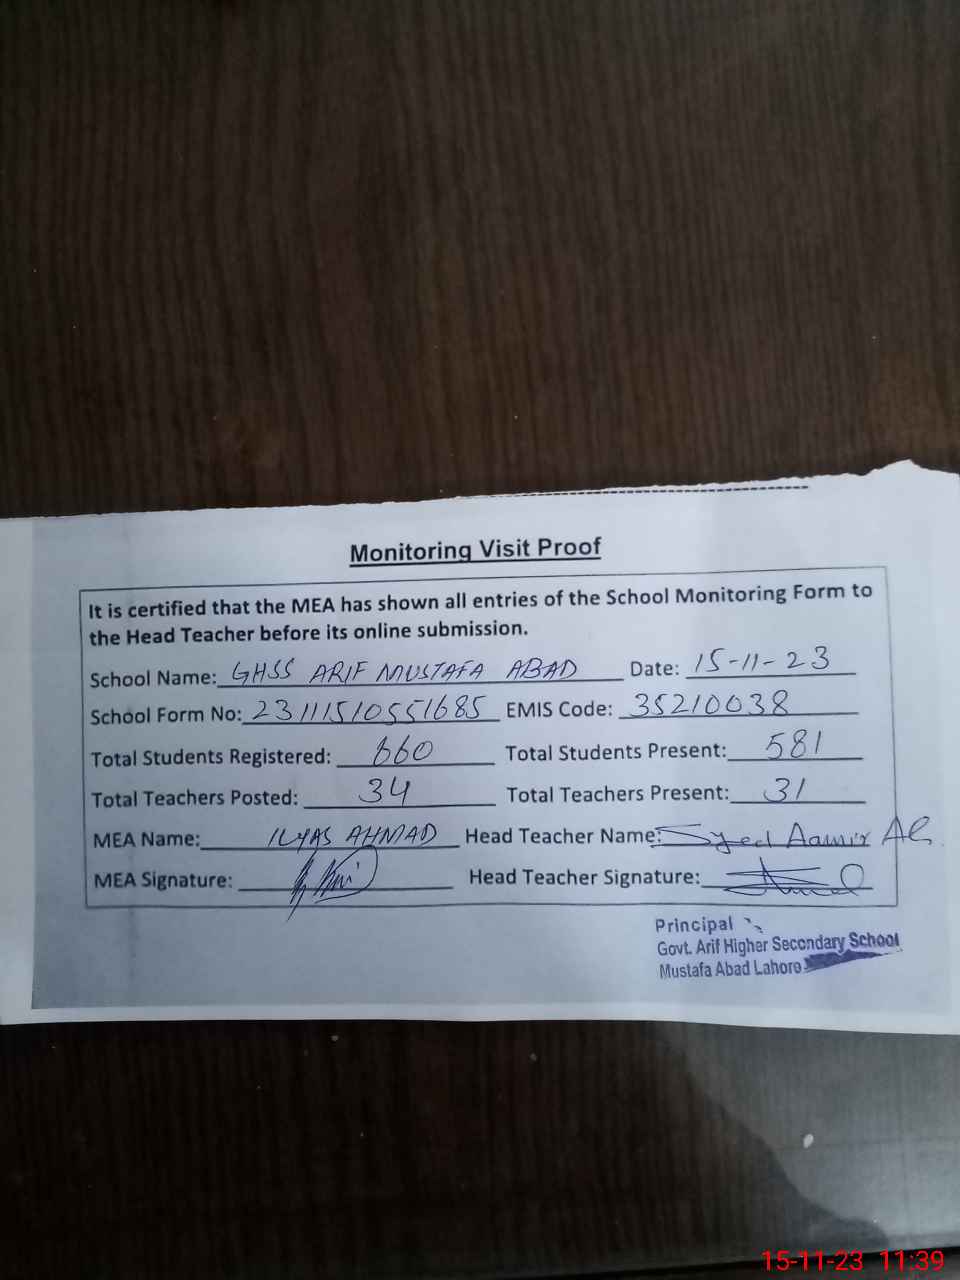 Monitoring Visit Proof
It is certified that the MEA has shown all entries of the School Monitoring Form to
the Head Teacher before its online submission.
School Name: GHSS ARIF MUSTAFA ABAD Date: 15-11-23
School Form No: 23111510551685 EMIS Code: 35210038
Total Students Registered: 660 Total Students Present: 581
Total Teachers Posted: 34 Total Teachers Present: 31
MEA Name: ILYAS AHMAD Head Teacher Name: Syed Aamir Ali
MEA Signature: Head Teacher Signature:
Principal
Govt. Arif Higher Secondary School
Mustafa Abad Lahore
15-11-23 11:39